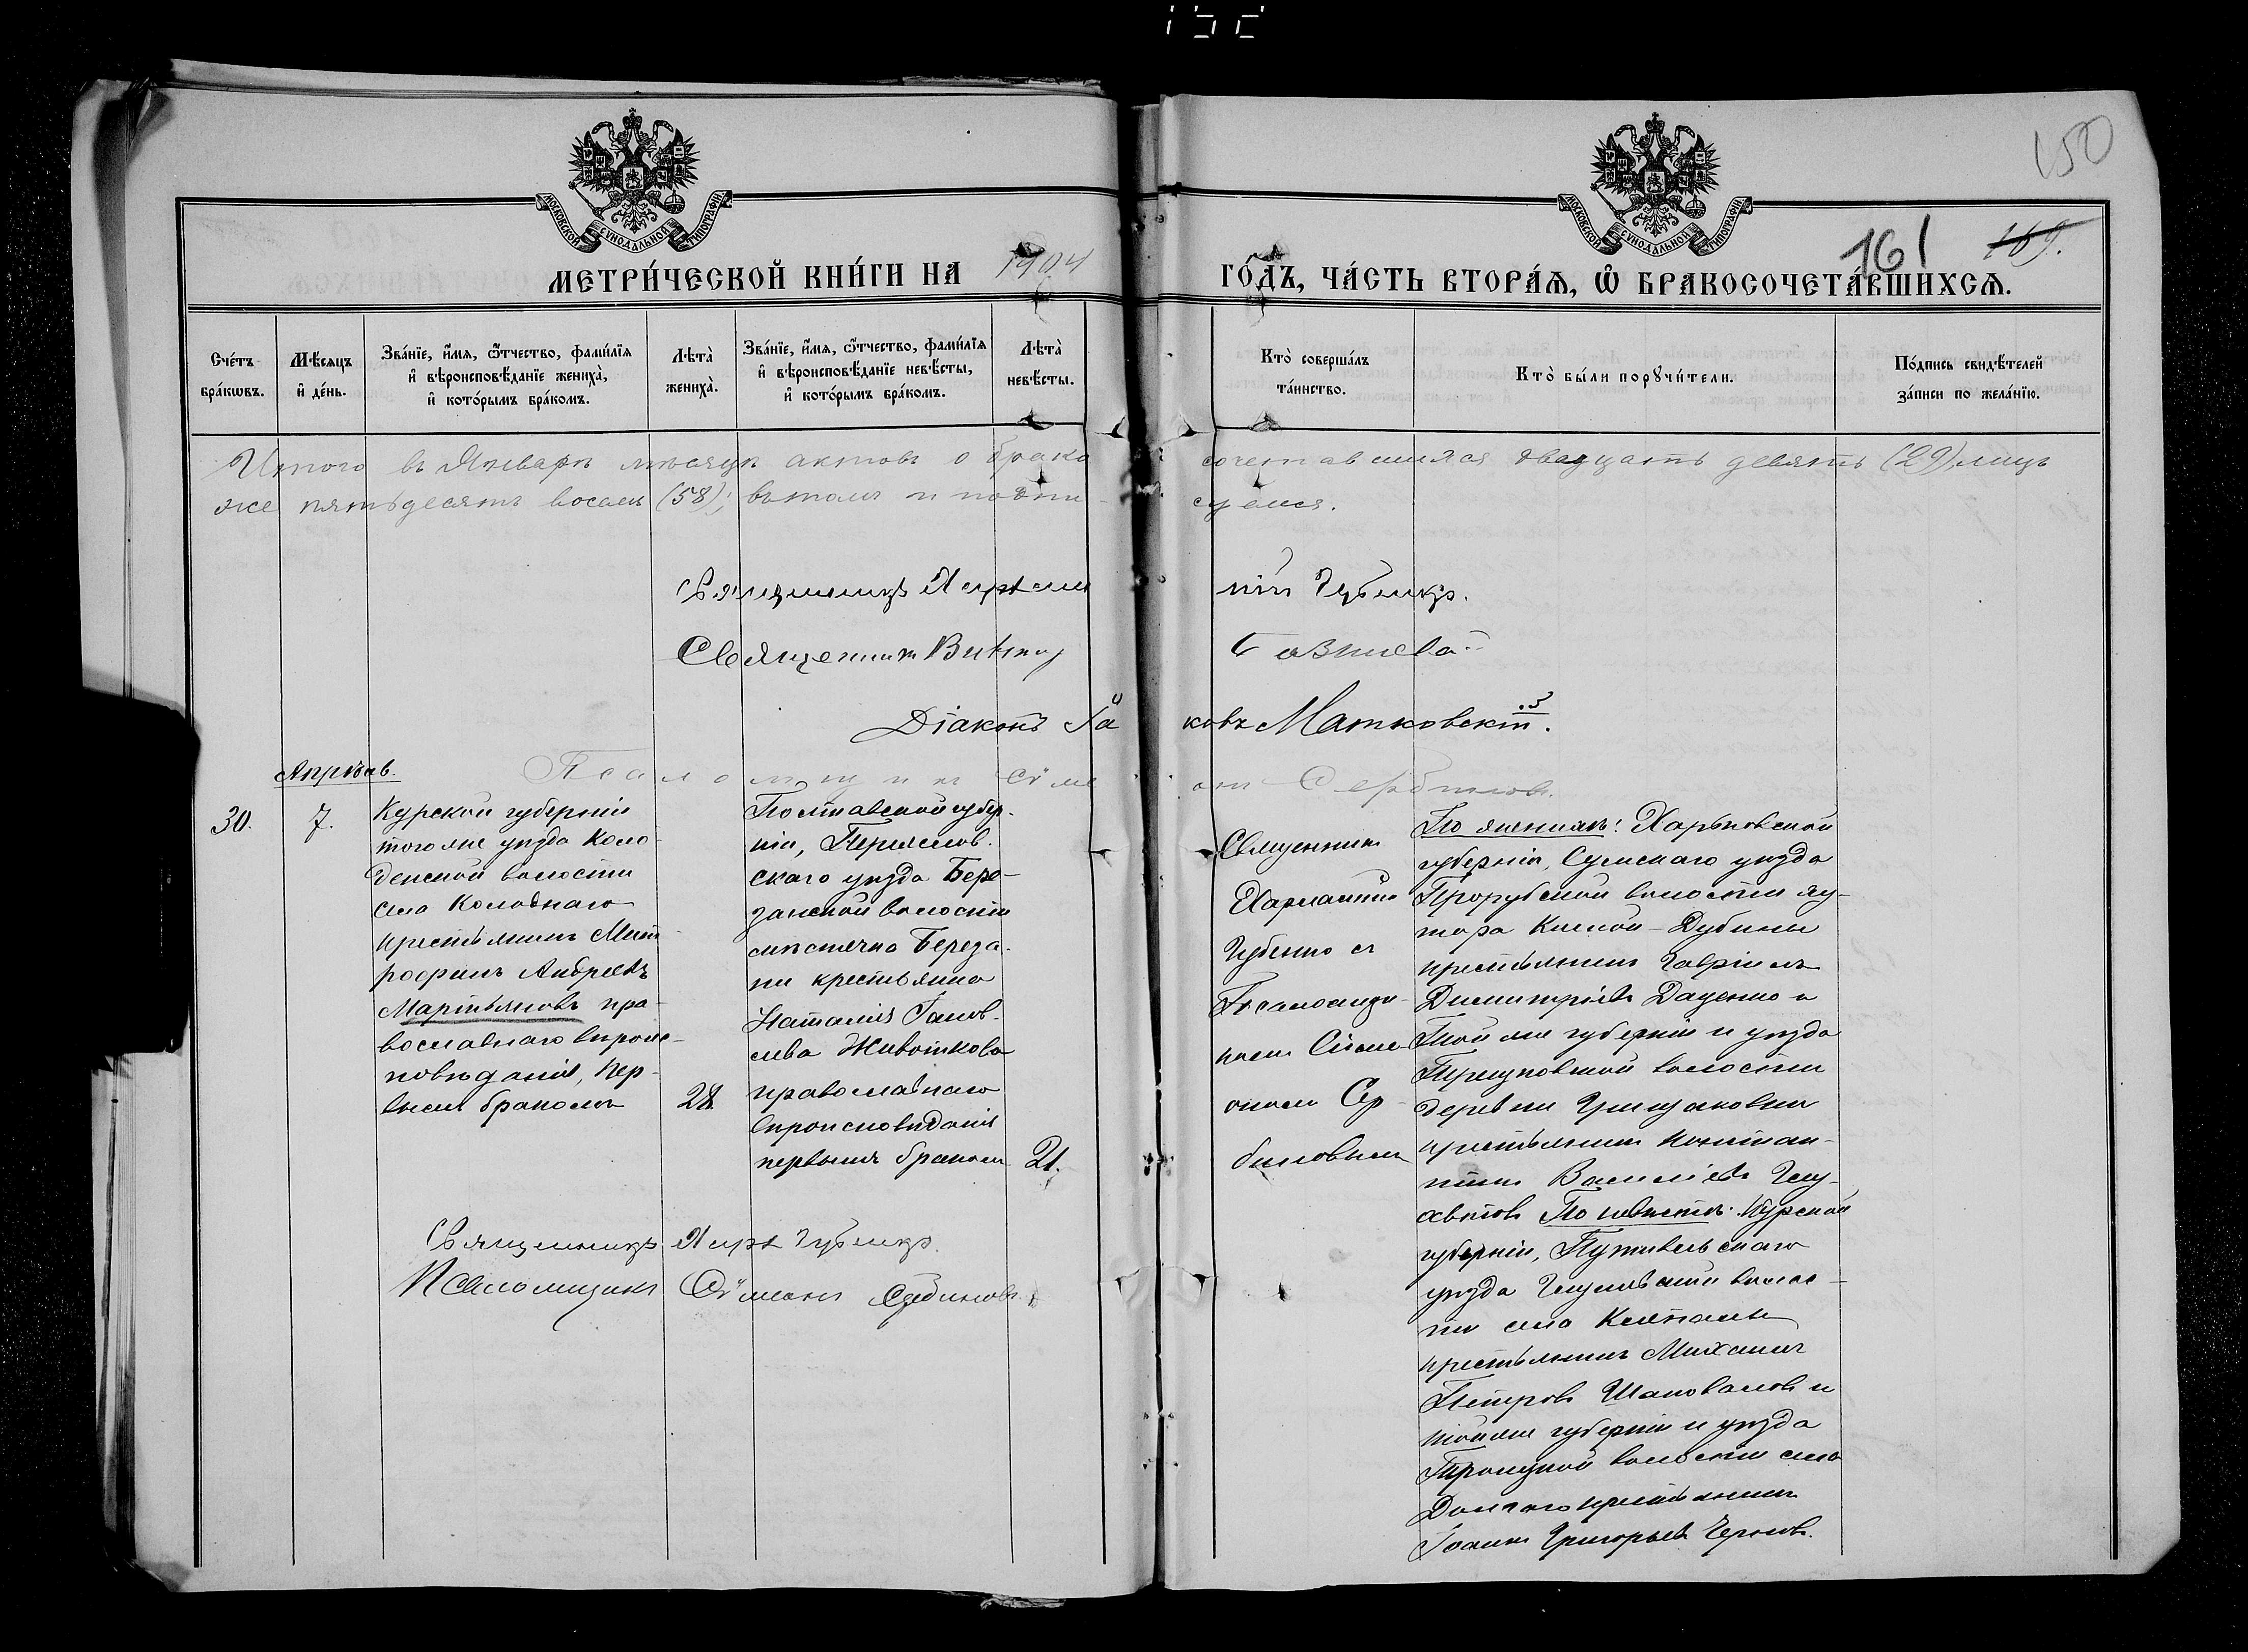 150
161
169.
МОСКОВСКОЙ СѴНОДАЛЬНОЙ ТИПОГРАФІИ.
МОСКОВСКОЙ СѴНОДАЛЬНОЙ ТИПОГРАФІИ.
МЕТРИ́ЧЕСКОЙ КНИ́ГИ НА 1904 ГО́ДЪ, ЧА́СТЬ ВТОРА́Ѧ, Ѡ҆ БРАКОСОЧЕТА́ВШИХСѦ.
Сче́тъ бра́кѡвъ.
Мѣ́сѧцъ и҆ де́нь.
Зва́нїе, и҆́мѧ, ѻ҆́тчество, фами́лїѧ
и҆ вѣроисповѣ́данїе жениха̀,
и҆ кото́рымъ бра́комъ.
Лѣта̀ жениха̀.
Зва́нїе, и҆́мѧ, ѻ҆́тчество, фами́лїѧ
и҆ вѣроисповѣ́данїе невѣ́сты,
и҆ кото́рымъ бра́комъ.
Лѣта̀ невѣ́сты.
Кто̀ соверша́лъ
та́инство.
Кто̀ бы́ли порꙋчи́тели.
По́дпись свидѣ́телей
за́писи по жела́нїю.
Итого въ Январѣ мѣсяцѣ актовъ о брако сочетавшихся двадцать девять (29), лицъ
же пятьдесятъ восемь (58); въ томъ и подпи- суемся.
Священникъ Харлам пій Губенко.
Священникъ
Діаконъ Іа ковъ Матковскій.
Псаломщикъ Сѵме онъ
Апрѣль.
30.
7.
Курской губерніи
того же уѣзда Коло-
денской волости
села Колоднаго
крестьянинъ Мит-
рофанъ Андреевъ
Мартьяновъ пра-
вославнаго вѣроис-
повѣданія, пер-
вымъ бракомъ
28.
Полтавской губер-
ніи, Переяслов-
скаго уѣзда Бере-
занской волости
мѣстечка Береза-
ни крестьянка
Наталія
Животкова
православнаго
вѣроисповѣданія
первымъ бракомъ
21.
Священникъ
Харлампій
Губенко съ
Псаломщи-
комъ Сѵме-
ономъ
По женихѣ: Харьковской
губерніи, Сумскаго уѣзда
Прорубской волости ху-
тора Дубины
крестьянинъ Гавріилъ
Димитріевъ Даценко и
Той же губерніи и уѣзда
волости
деревни
крестьянинъ Констан-
тинъ Василіевъ
По невѣстѣ: Курской
губерніи, Путивльскаго
уѣзда волос-
ти села
крестьянинъ Михаилъ
Петровъ Шаповаловъ и
той же губерніи и уѣзда
волости села
крестьянинъ
Іоаннъ Григорьевъ Черновъ.
Священникъ Харл. Губенко.
Псаломщикъ Сѵмеонъ